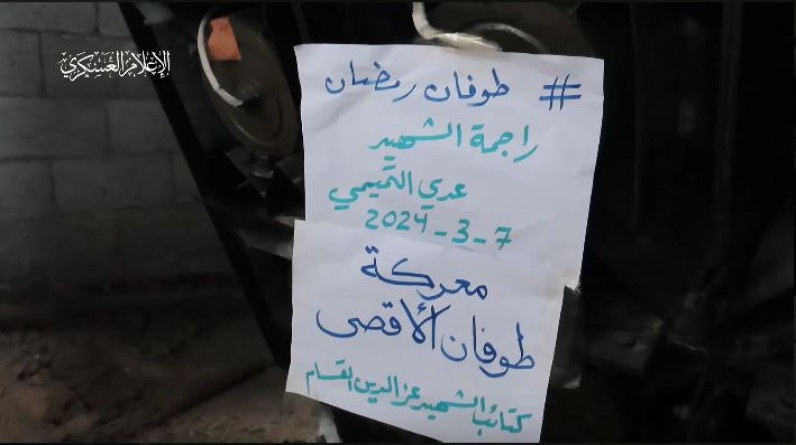 الإعلام العسكري
# طوفان رمضان
راجمة الشهيد
عدي التميمي
7-3-2024
معركة
طوفان الأقصى
كتائب الشهيد عز الدين القسام